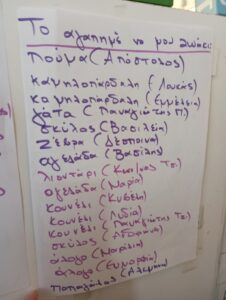 Το αγαπημένο μου ζωάκι:
πούμα (Απόστολος)
καμηλοπάρδαλη (Λουκάς)
καμηλοπάρδαλη (Εμμέλεια)
γάτα (Παναγιώτης Π.)
σκύλος (Βασιλεία)
ζέβρα (Δέσποινα)
αγελάδα (Βασίλης)
λιοντάρι (Κων/νος Τσ.)
αγελάδα (Μαρία)
κουνέλι (Κυβέλη)
κουνέλι (Λυδία)
κουνέλι (Παναγιώτης Τσ.)
σκύλος
άλογο (Μαρίλια)
άλογο (Ευμορφία)
παπαγάλος